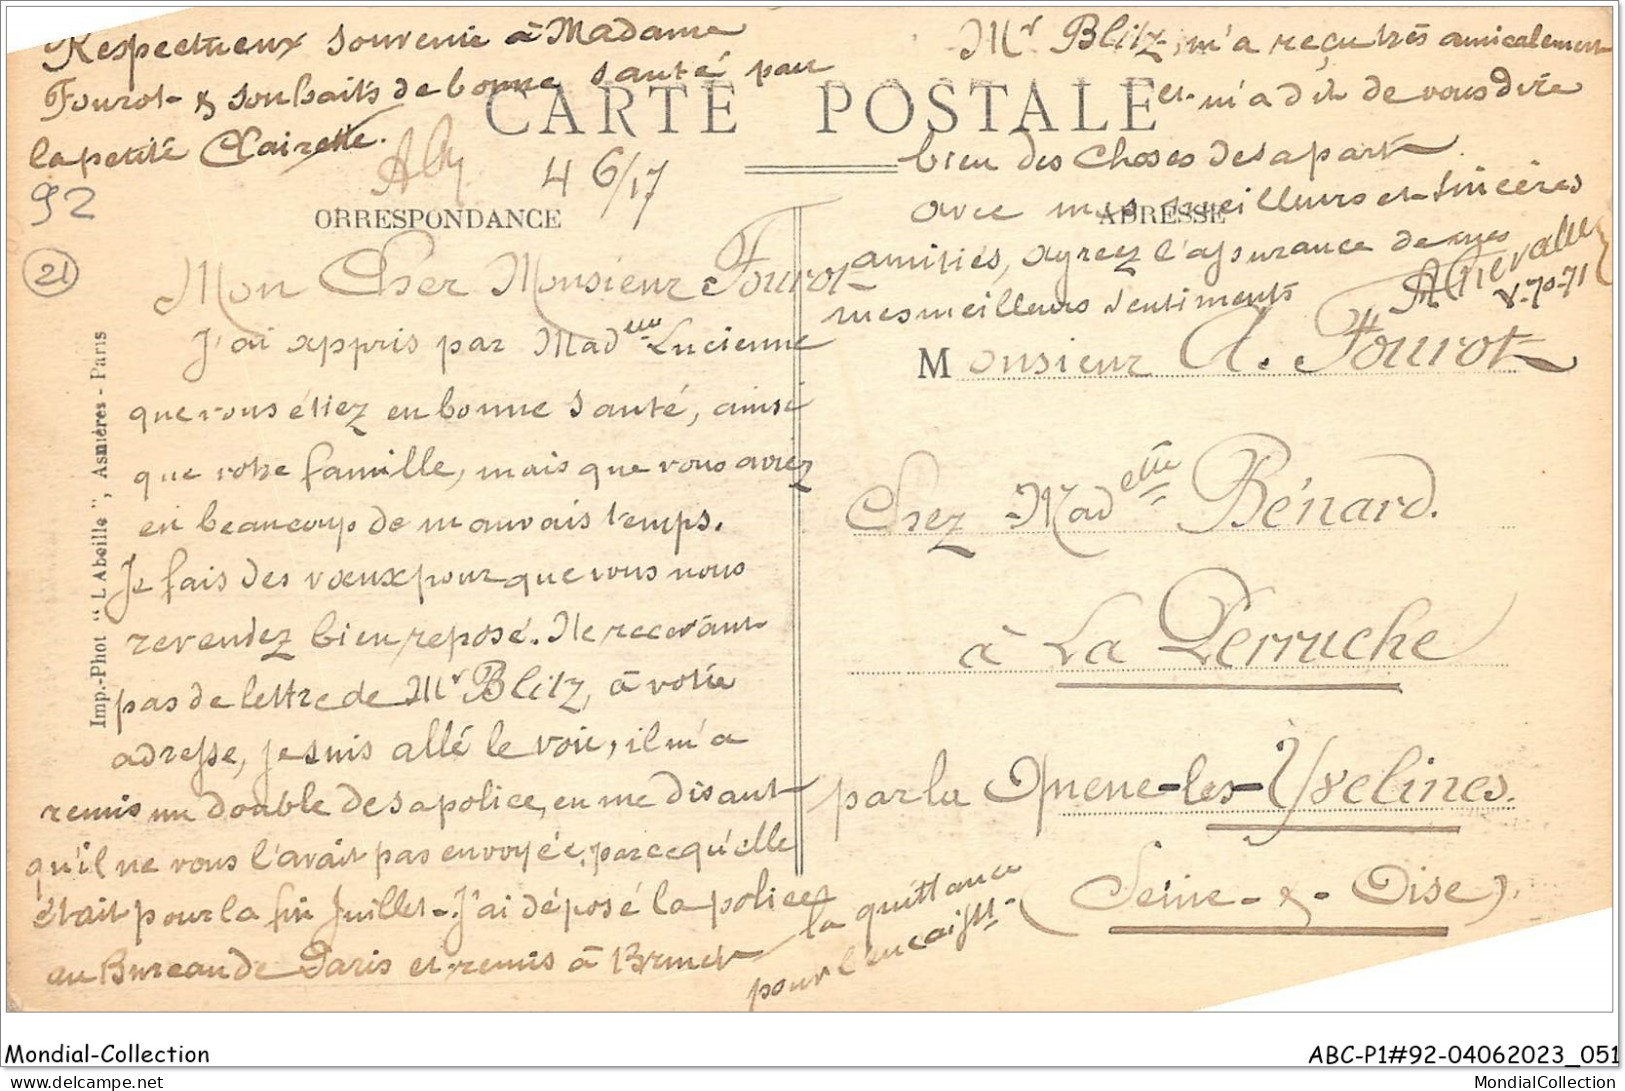 Respectueux souvenir à Madame
Fourot & souhaits de bonne santé par
la petite Clairette.
92
21
4 6/17
CARTE POSTALE
ORRESPONDANCE
ADRESSE
Mon Cher Monsieur Fourot
J'ai appris par Mad elle Lucienne
que vous étiez en bonne santé, ainsi
que votre famille, mais que vous aviez
eu beaucoup de mauvais temps.
Je fais des vœux pour que vous nous
revendez bien reposé. Ne recevant
pas de lettre de Mr Blitz, à votre
adresse, je suis allé le voir, il m'a
remis un double de sa police, en me disant
qu'il ne vous l'avait pas envoyée, parce qu'elle
était pour la fin Juillet - J'ai déposé la police
au Bureau de Paris et remis à Brunet la quittance
pour l'encaisst -
Mr Blitz, m'a reçu très amicalement
et m'a dit de vous dire
bien des choses de sa part
avec mes meilleurs et sincères
amitiés, agréez l'assurance de mes
mes meilleurs sentiments
Monsieur A. Fourot
Chez Mad elle Bénard.
à La Perruche
par la Queue-les-Yvelines.
(Seine-&-Oise).
Imp.-Phot "L'Abeille", Asnières - Paris
Mondial-Collection
ABC-P1#92-04062023_051
delcampe.net
MondialCollection